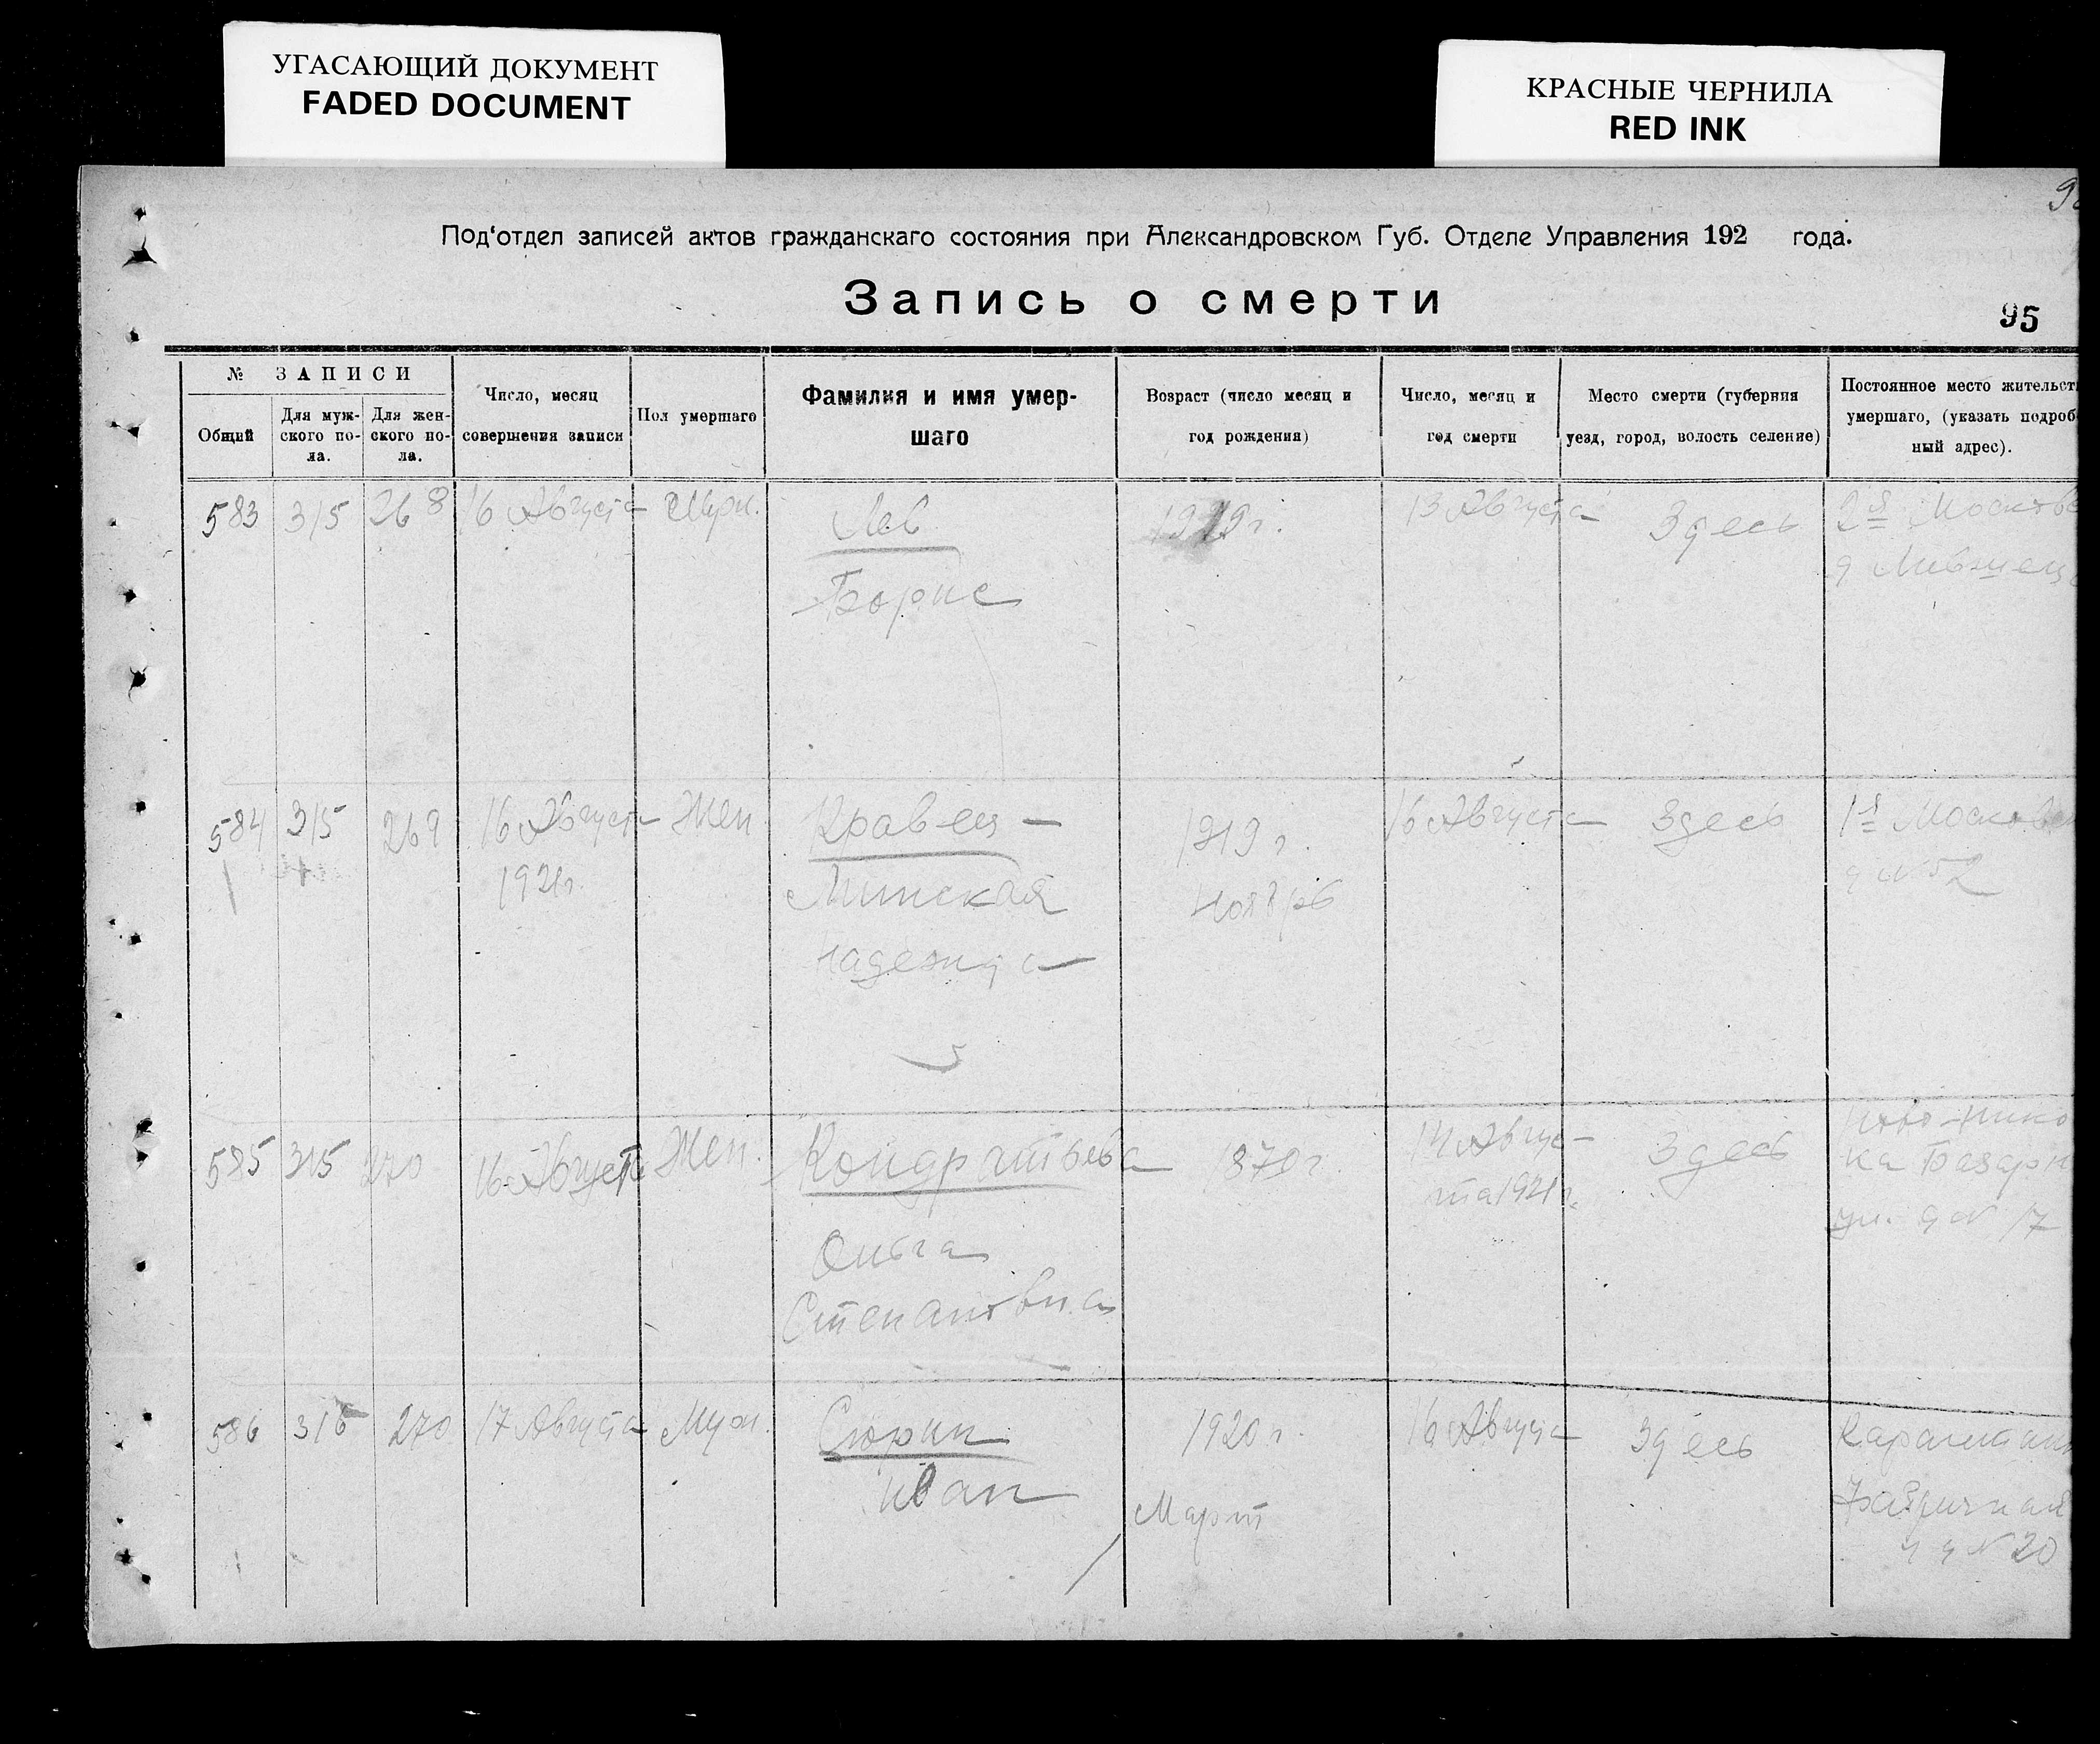 УГАСАЮЩИЙ ДОКУМЕНТ
FADED DOCUMENT
КРАСНЫЕ ЧЕРНИЛА
RED INK
Под'отдел записей актов гражданскаго состояния при Александровском Губ. Отделе Управления 192 года.
Запись о смерти
95
№ ЗАПИСИ
Общий
Для муж-
ского по-
ла.
Для жен-
ского по-
ла.
Число, месяц
совершения записи
Пол умершаго
Фамилия и имя умер-
шаго
Возраст (число месяц и
год рождения)
Число, месяц и
год смерти
Место смерти (губерния
уезд, город, волость селение)
Постоянное место жительст
умершаго, (указать подроб
ный адрес).
583 315 268 16 Августа Муж. Лев 1919 г. 13 Августа Здесь 2я Московс
Борис
584 315 269 16 Августа Жен Кравец- 1919 г. 16 Августа Здесь 1я Московск
1921г. Минская Ноябрь д N 52
Надежда
585 315 270 16 Августа Жен. Кондратьева 1870 г. 14 Авгус-
та 1921 г. Здесь Ново-Нико
ка Базарн
ул. д N 17
Ольга
Степановна
586 316 270 17 Августа Муж. Сюрин 1920 г. 16 Августа Здесь
Иван Март
д N 20